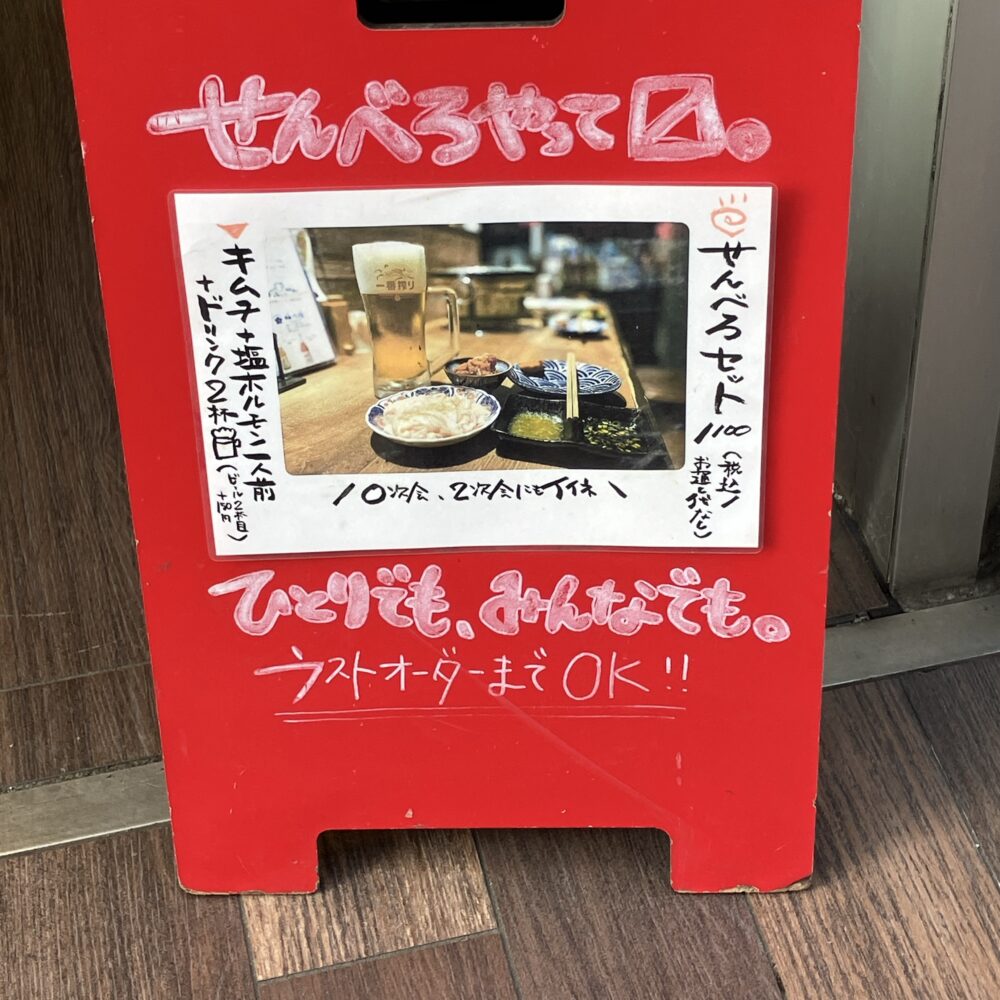 せんべろやって〼。
せんべろセット
1100(税込)
お通し代なし)
一番搾り
キムチ+塩ホルモン一人前
+ドリンク2杯
(ビール2杯目
+150円)
\0次会、2次会にもイイネ/
ひとりでも、みんなでも。
ラストオーダーまでOK!!